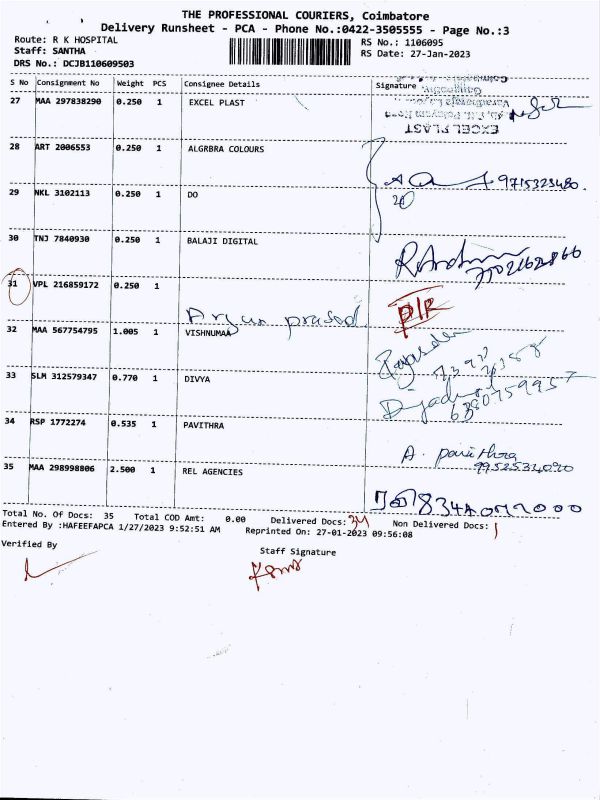 THE PROFESSIONAL COURIERS, Coimbatore
Delivery Runsheet - PCA - Phone No.:0422-3505555 - Page No.:3
Route: R K HOSPITAL RS No.: 1106095
Staff: SANTHA RS Date: 27-Jan-2023
DRS No.: DCJB110609503
S No Consignment No Weight PCS Consignee Details Signature
27 MAA 297838290 0.250 1 EXCEL PLAST EXCEL PLAST
28 ART 2006553 0.250 1 ALGRBRA COLOURS
29 NKL 3102113 0.250 1 DO 9715323480.
30 TNJ 7840930 0.250 1 BALAJI DIGITAL
31 VPL 216859172 0.250 1
Arjun prasad
32 MAA 567754795 1.005 1 VISHNUMAA
33 SLM 312579347 0.770 1 DIVYA
6380759957
34 RSP 1772274 0.535 1 PAVITHRA A. pavithra
35 MAA 298998806 2.500 1 REL AGENCIES
Total No. Of Docs: 35 Total COD Amt: 0.00 Delivered Docs: 34 Non Delivered Docs: 1
Entered By :HAFEEFAPCA 1/27/2023 9:52:51 AM Reprinted On: 27-01-2023 09:56:08
Verified By Staff Signature